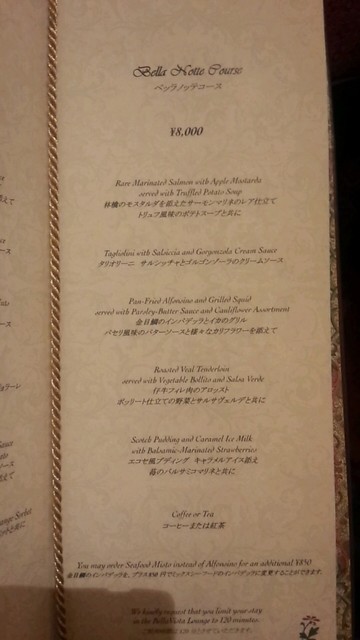 Bella Notte Course
ベッラノッテコース
¥8,000
Rare Marinated Salmon with Apple Mostarda
served with Truffled Potato Soup
林檎のモスタルダを添えたサーモンマリネのレア仕立て
トリュフ風味のポテトスープと共に
Tagliolini with Salsiccia and Gorgonzola Cream Sauce
タリオリーニ サルシッチャとゴルゴンゾーラのクリームソース
Pan-Fried Alfonsino and Grilled Squid
served with Parsley-Butter Sauce and Cauliflower Assortment
金目鯛のインパデッラとイカのグリル
パセリ風味のバターソースと様々なカリフラワーを添えて
Roasted Veal Tenderloin
served with Vegetable Bollito and Salsa Verde
仔牛フィレ肉のアロスト
ボッリート仕立ての野菜とサルサヴェルデと共に
Scotch Pudding and Caramel Ice Milk
with Balsamic-Marinated Strawberries
エコセ風プディング キャラメルアイス添え
苺のバルサミコマリネと共に
Coffee or Tea
コーヒーまたは紅茶
You may order Seafood Misto instead of Alfonsino for an additional ¥850
金目鯛のインパデッラを、プラス850円でミックスシーフードのインパデッラに変更することができます。
We kindly request that you limit your stay
in the BellaVista Lounge to 120 minutes.